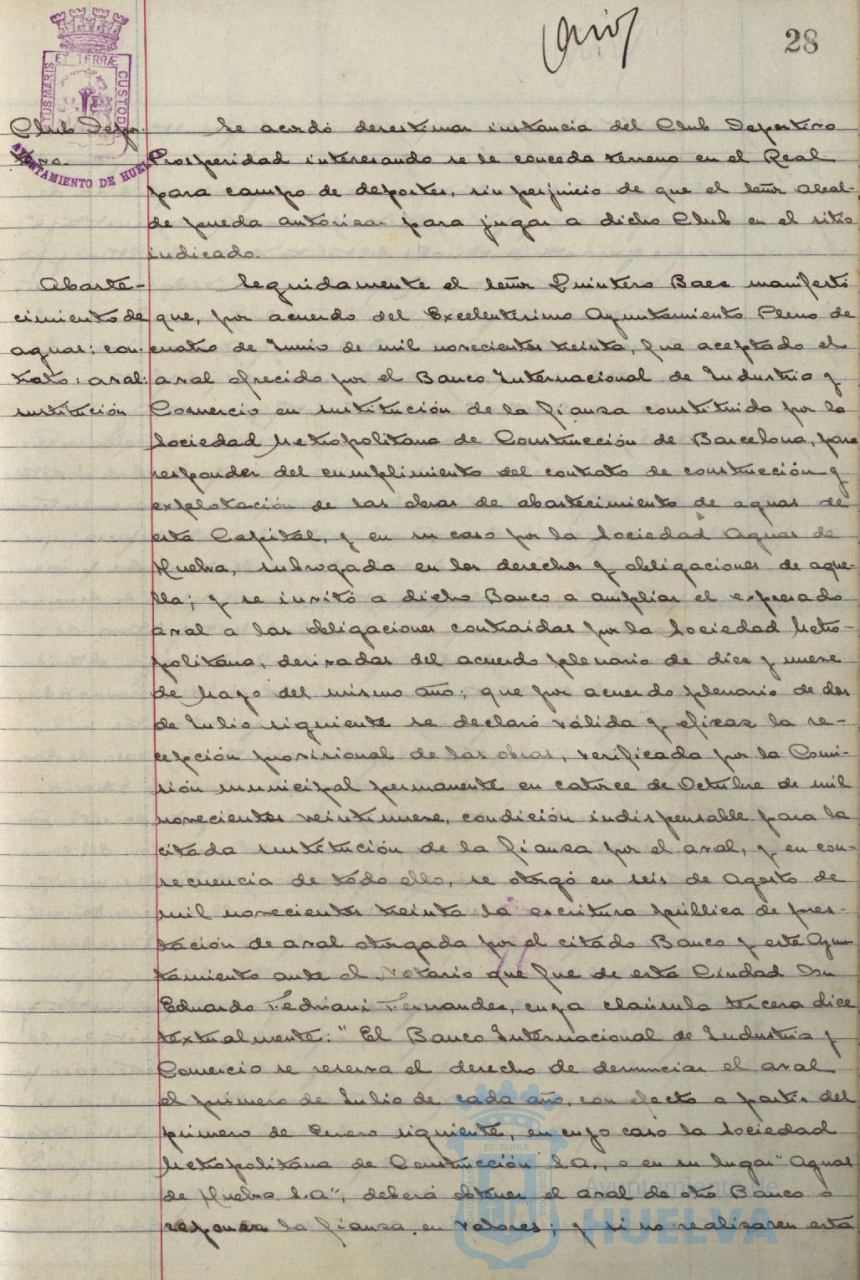 28
ET TERRÆ
CUSTOD
AYUNTAMIENTO DE HUELVA
Club Depor-
tivo.
Se acordó desestimar instancia del Club Deportivo
Prosperidad interesando se le conceda terreno en el Real
para campo de deportes, sin perjuicio de que el señor Alcal-
de pueda autorizar para jugar a dicho Club en el sitio
indicado.
Abaste-
cimiento de
aguas: con-
trato: aval:
sustitución
Seguidamente el señor Quintero Baez manifestó
que, por acuerdo del Excelentísimo Ayuntamiento Pleno de
cuatro de Junio de mil novecientos treinta, fue aceptado el
aval ofrecido por el Banco Internacional de Industria y
Comercio en sustitución de la fianza constituida por la
Sociedad Metropolitana de Construcción de Barcelona, para
responder del cumplimiento del contrato de construcción y
explotación de las obras de abastecimiento de aguas de
esta Capital, y en su caso por la Sociedad Aguas de
Huelva, subrogada en los derechos y obligaciones de aque-
lla; y se invitó a dicho Banco a ampliar el expresado
aval a las obligaciones contraidas por la Sociedad Metro-
politana, derivadas del acuerdo plenario de diez y nueve
de Mayo del mismo año; que por acuerdo plenario de dos
de Julio siguiente se declaró válida y eficaz la re-
cepción provisional de las obras, verificada por la Comi-
sión municipal permanente en catorce de Octubre de mil
novecientos veintinueve, condición indispensable para la
citada sustitución de la fianza por el aval, y en con-
secuencia de todo ello, se otorgó en seis de Agosto de
mil novecientos treinta la escritura pública de pres-
tación de aval otorgada por el citado Banco y este Ayun-
tamiento ante el Notario que fue de esta Ciudad Don
Eduardo Fedriani Fernandez, cuya claúsula tercera dice
textualmente: "El Banco Internacional de Industria y
Comercio se reserva el derecho de denunciar el aval
el primero de Julio de cada año, con efecto a partir del
primero de Enero siguiente, en cuyo caso la Sociedad
Metropolitana de Construcción S.A., o en su lugar "Aguas
de Huelva S.A", deberá obtener el aval de otro Banco o
reponer la fianza en valores; y si no realizaren esta
Ayuntamiento de
HUELVA